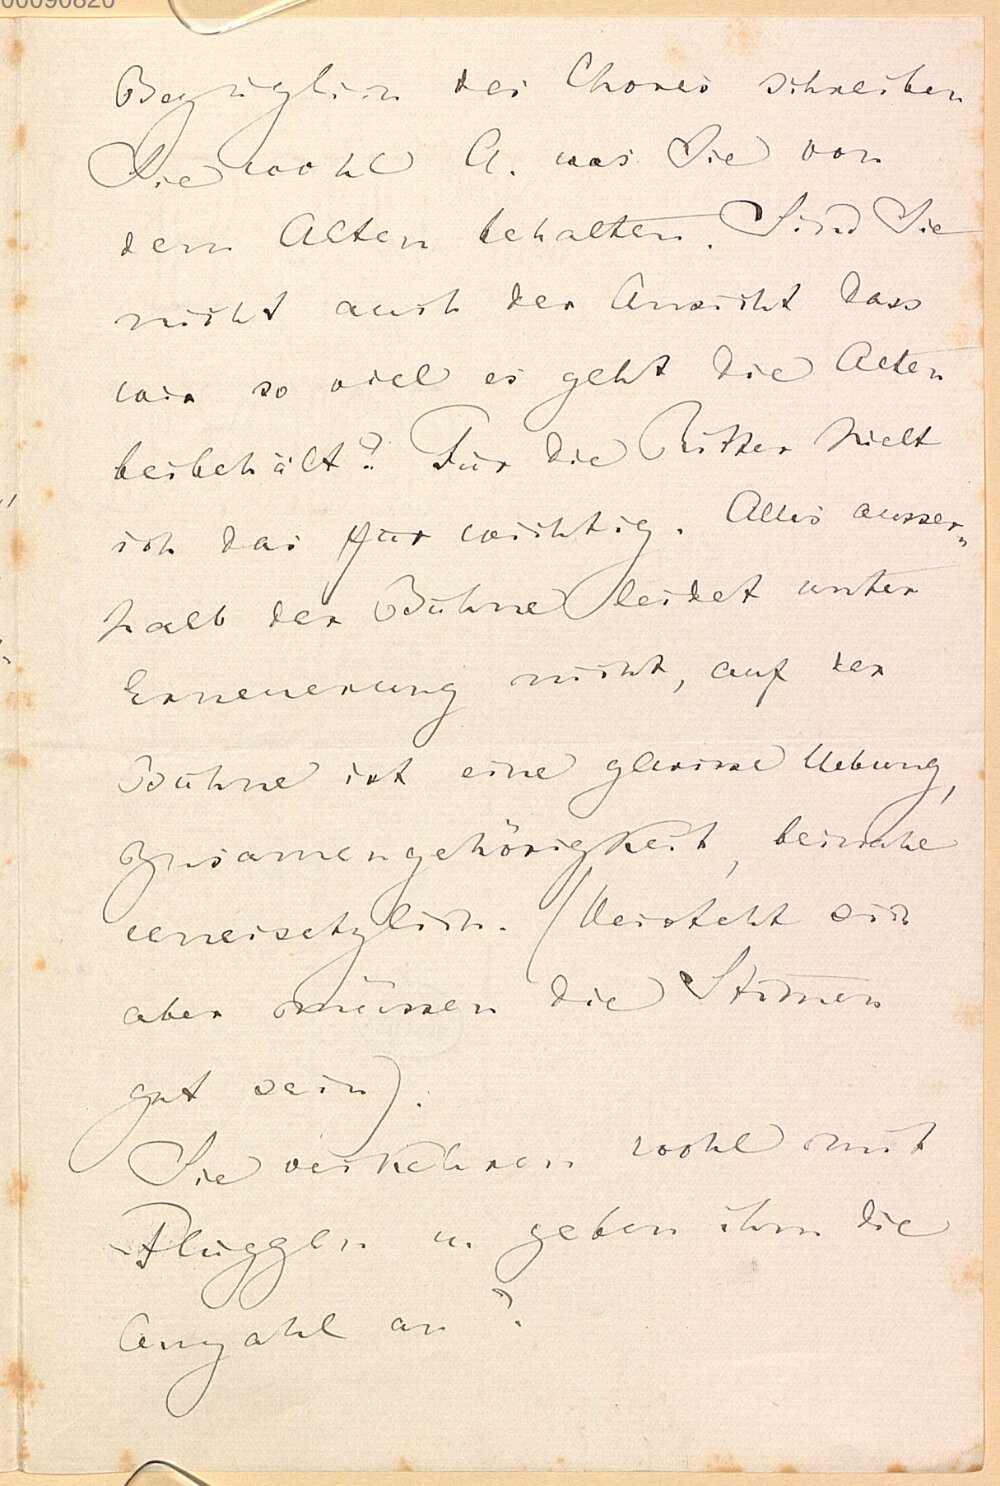 00090820
Bezüglich des Chores schreiben
Sie wohl A. was Sie von
dem Alten behalten. Sind Sie
nicht auch der Ansicht dass
wir so viel es geht die Alten
beibehält? Für die Ritter hielt
ich das für wichtig. Alles ausser„
halb der Bühne leidet unter
Erneuerung nicht, auf der
Bühne ist eine gewisse Uebung,
Zusamengehörigkeit, beinahe
unersetzlich. (Versteht sich
aber müssen die Stimen
gut sein).
Sie verkehren wohl mit
Plüggen u. geben ihm die
Anzahl an?